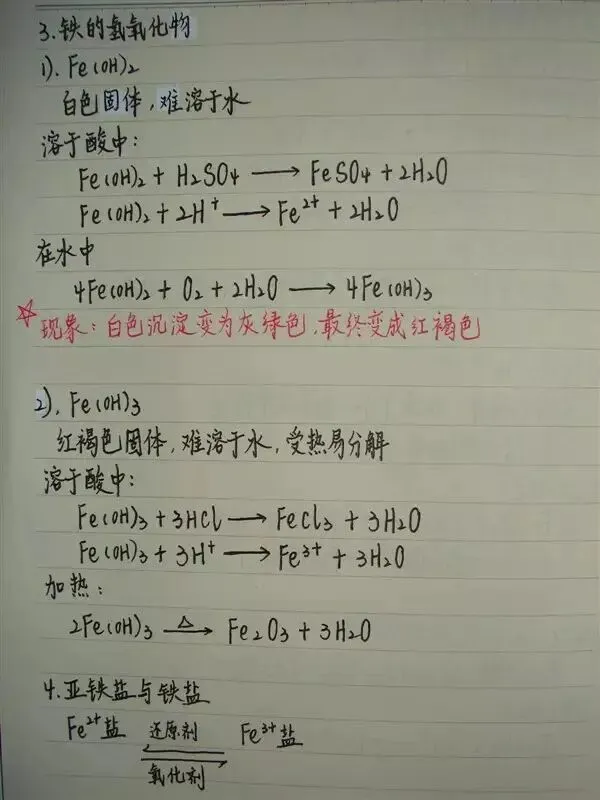 3.铁的氢氧化物
1). Fe(OH)2
白色固体,难溶于水
溶于酸中:
Fe(OH)2 + H2SO4 ⟶ FeSO4 + 2H2O
Fe(OH)2 + 2H⁺ ⟶ Fe²⁺ + 2H2O
在水中
4Fe(OH)2 + O2 + 2H2O ⟶ 4Fe(OH)3
☆现象:白色沉淀变为灰绿色.最终变成红褐色
2). Fe(OH)3
红褐色固体,难溶于水,受热易分解
溶于酸中:
Fe(OH)3 + 3HCl ⟶ FeCl3 + 3H2O
Fe(OH)3 + 3H⁺ ⟶ Fe³⁺ + 3H2O
加热:
2Fe(OH)3 ⟶ Fe2O3 + 3H2O
△
4.亚铁盐与铁盐
Fe²⁺盐 还原剂 Fe³⁺盐
氧化剂